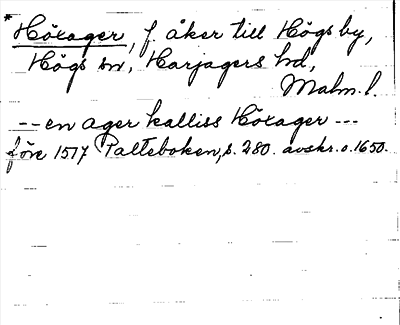 *Höxager, f. åker till Högs by,
Högs sn, Harjagers hd,
Malm. l.
-- en ager kalliss Höxager ---
före 1517 Palteboken, s. 280. avskr. o. 1650.